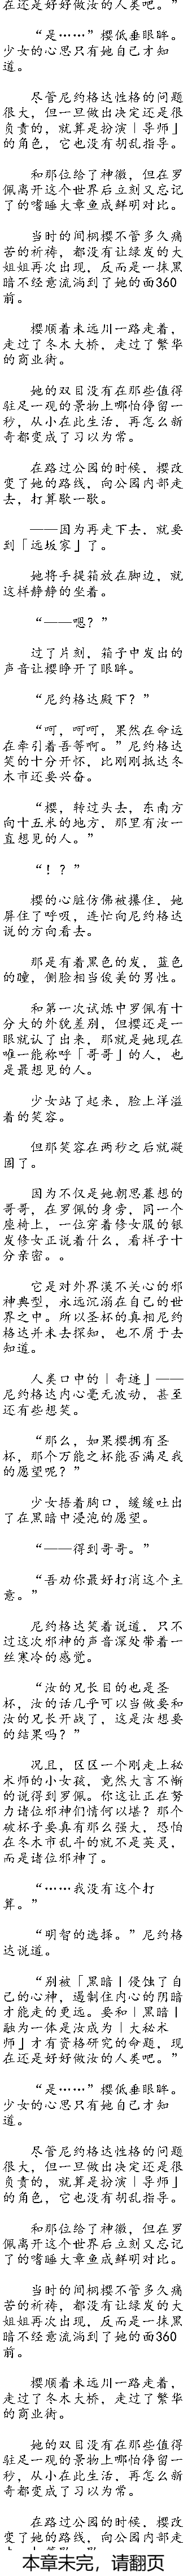 在还是好好做汝的人类吧。”
“是……”樱低垂眼眸。
少女的心思只有她自己才知
道。
尽管尼约格达性格的问题
很大，但一旦做出决定还是很
负责的，就算是扮演「导师」
的角色，它也没有胡乱指导。
和那位给了神徽，但在罗
佩离开这个世界后立刻又忘记
了的嗜睡大章鱼成鲜明对比。
当时的间桐樱不管多久痛
苦的祈祷，都没有让绿发的大
姐姐再次出现，反而是一抹黑
暗不经意流淌到了她的面360
前。
樱顺着未远川一路走着，
走过了冬木大桥，走过了繁华
的商业街。
她的双目没有在那些值得
驻足一观的景物上哪怕停留一
秒，从小在此生活，再怎么新
奇都变成了习以为常。
在路过公园的时候，樱改
变了她的路线，向公园内部走
去，打算歇一歇。
——因为再走下去，就要
到「远坂家」了。
她将手提箱放在脚边，就
这样静静的坐着。
“——嗯？”
过了片刻，箱子中发出的
声音让樱睁开了眼眸。
“尼约格达殿下？”
“呵，呵呵，果然在命运
在牵引着吾等啊。”尼约格达
笑的十分开怀，比刚刚抵达冬
木市还要兴奋。
“樱，转过头去，东南方
向十五米的地方，那里有汝一
直想见的人。”
“！？”
樱的心脏仿佛被攥住，她
屏住了呼吸，连忙向尼约格达
说的方向看去。
那是有着黑色的发，蓝色
的瞳，侧脸相当俊美的男性。
和第一次试炼中罗佩有十
分大的外貌差别，但樱还是一
眼就认了出来，那就是她现在
唯一能称呼「哥哥」的人，也
是最想见的人。
少女站了起来，脸上洋溢
着的笑容。
但那笑容在两秒之后就凝
固了。
因为不仅是她朝思暮想的
哥哥，在罗佩的身旁，同一个
座椅上，一位穿着修女服的银
发修女正说着什么，看样子十
分亲密。。
它是对外界漠不关心的邪
神典型，永远沉溺在自己的世
界之中。所以圣杯的真相尼约
格达并未去探知，也不屑于去
知道。
人类口中的「奇迹」——
尼约格达内心毫无波动，甚至
还有些想笑。
“那么，如果樱拥有圣
杯，那个万能之杯能否满足我
的愿望呢？”
少女捂着胸口，缓缓吐出
了在黑暗中浸泡的愿望。
“——得到哥哥。”
“吾劝你最好打消这个主
意。”
尼约格达笑着说道，只不
过这次邪神的声音深处带着一
丝寒冷的感觉。
“汝的兄长目的也是圣
杯，汝的话几乎可以当做要和
汝的兄长开战了，这是汝想要
的结果吗？”
况且，区区一个刚走上秘
术师的小女孩，竟然大言不惭
的说得到罗佩。你这让正在努
力诸位邪神们情何以堪？那个
破杯子要真有那么强大，恐怕
在冬木市乱斗的就不是英灵，
而是诸位邪神了。
“……我没有这个打
算。”
“明智的选择。”尼约格
达说道。
“别被「黑暗」侵蚀了自
己的心神，遏制住内心的阴暗
才能走的更远。要和「黑暗」
融为一体是汝成为「大秘术
师」才有资格研究的命题，现
在还是好好做汝的人类吧。”
“是……”樱低垂眼眸。
少女的心思只有她自己才知
道。
尽管尼约格达性格的问题
很大，但一旦做出决定还是很
负责的，就算是扮演「导师」
的角色，它也没有胡乱指导。
和那位给了神徽，但在罗
佩离开这个世界后立刻又忘记
了的嗜睡大章鱼成鲜明对比。
当时的间桐樱不管多久痛
苦的祈祷，都没有让绿发的大
姐姐再次出现，反而是一抹黑
暗不经意流淌到了她的面360
前。
樱顺着未远川一路走着，
走过了冬木大桥，走过了繁华
的商业街。
她的双目没有在那些值得
驻足一观的景物上哪怕停留一
秒，从小在此生活，再怎么新
奇都变成了习以为常。
在路过公园的时候，樱改
变了她的路线，向公园内部走
本章未完，请翻页